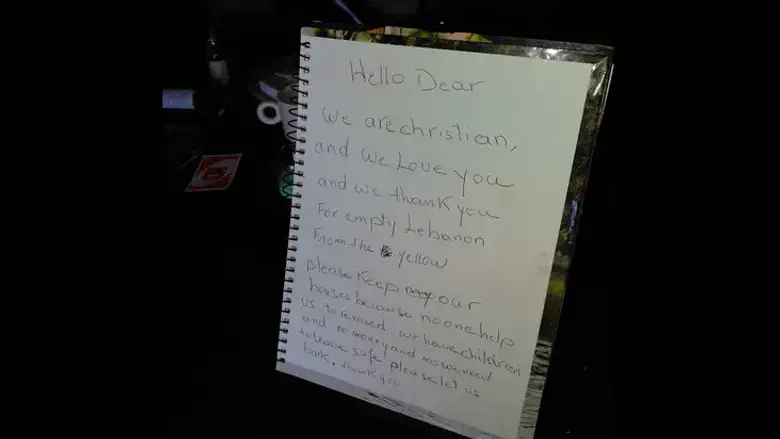 Hello Dear
We are christian,
and we Love you
and we thank you
For empty Lebanon
From the yellow
please keep our
houses because no one help
us to renued. we have childreen
and no money and we need
to leave safe please let us
back. thank you